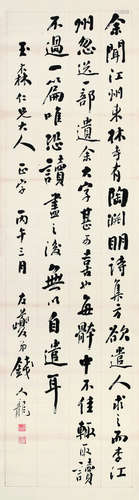 余聞江州東林寺有陶淵明詩集方欲遣人求之而李江
州忽送一部遺余大字甚可喜也每體中不佳輒取讀
不過一篇唯恐讀盡之後無以自遣耳
玉森仁兄大人正字 丙午三月 左夔弟錢人龍